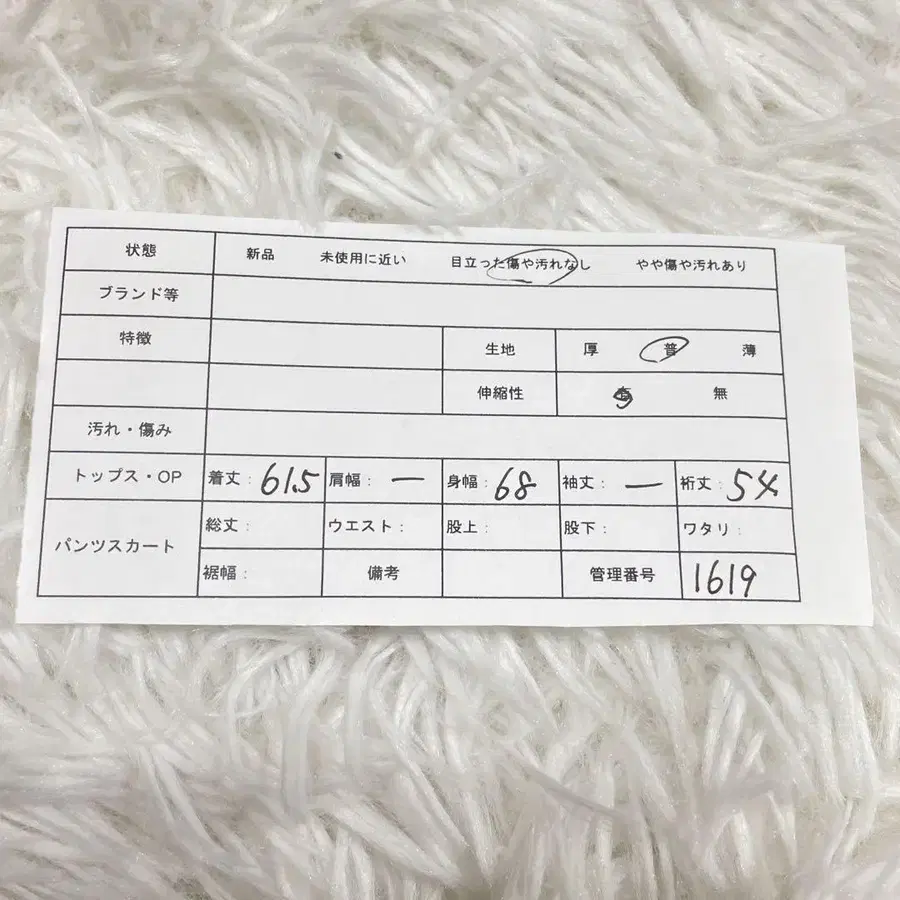 状態 新品 未使用に近い 目立った傷や汚れなし やや傷や汚れあり
ブランド等
特徴 生地 厚 普 薄
伸縮性 無
汚れ・傷み
トップス・OP 着丈: 61.5 肩幅: — 身幅: 68 袖丈: — 裄丈: 54
パンツスカート 総丈: ウエスト: 股上: 股下: ワタリ:
裾幅: 備考 管理番号 1619